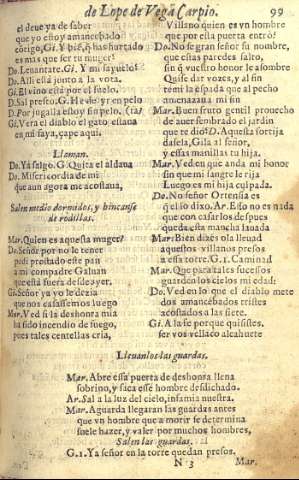 de Lope de Vega Carpio. 99
el deue ya de saber
que yo estoy amancebado
cõtigo, Gi. Y pië, q̃ has hurtado
es mas que ser tu muger?
Do. Leuantate. Gi. Y mi sayuelo?
Do. Alli està junto a la vota.
Gi. El vino està por el suelo.
D. Sal presto. G. Hedeyr en pelo
D. Por jugalla estoy sin pelo.
Gi. Vera el diablo el gato estaua
en mi saya, cape aqui.
Llaman.
Do. Ya salgo. G. Quita el aldaua
Do. Misericordia de mi
que aun agora me acostaua,
Salen medio dormidos, y hincanse
de rodillas.
Mar. Quien es aquesta muger?
Do. Señor por no le tener
pedi prestado este pan
a mi compadre Galuan
que està fuera desdeayer.
Gi. Señor ya yo le dezia
que nos casassemos luego
Mar. Ved si la deshonra mia
ha sido incendio de fuego,
pues tales centellas cria,
Villano quien es vn hombre
que por esta puerta entrò?
Do. No se gran señor su nombre,
que estas paredes salto,
sin q̃ vuestro honor le assombre
Quise dar vozes, y al sin
temi la espada que al pecho
amenazaua mi fin
Mar. Buen fruto gentil prouecho
de auer sembrado el jardin
que te dio? D. Aquesta sortija
dasela, Gila al señor,
y essas manillas tu hija.
Mar. Ved en que anda mi honor
sin que mi sangre le rija
Luego es mi hija culpada.
Do. No señor Ortensia es
quilo dixo. Ar. Esso no es nada
que con casarlos despues
queda esta mancha lauada
Mar. Bien dizes ola lleuad
aquestos villanos presos
a essa torre. G. 1. Caminad
Mar. Que para tales sucessos
guarden los cielos mi edad:
Do. Ved en lo que el diablo mete
dos amancebados tristes
acostados a las siete.
Gi. A la se porque quisistes.
ser vos vellaco alcahuete
Lleuanlos las guardas.
Mar. Abre essa puerta de deshonra llena
sobrino, y saca esse hombre desdichado.
Ar. Sal a la luz del cielo, infamia nuestra.
Mar. Aguarda llegaran las guardas antes
que vn hombre que a morir se determina
suele hazer, y valer por muchos hombres,
Salen las guardas.
G. 1. Ya señor en la torre quedan presos.
N 3 Mar.